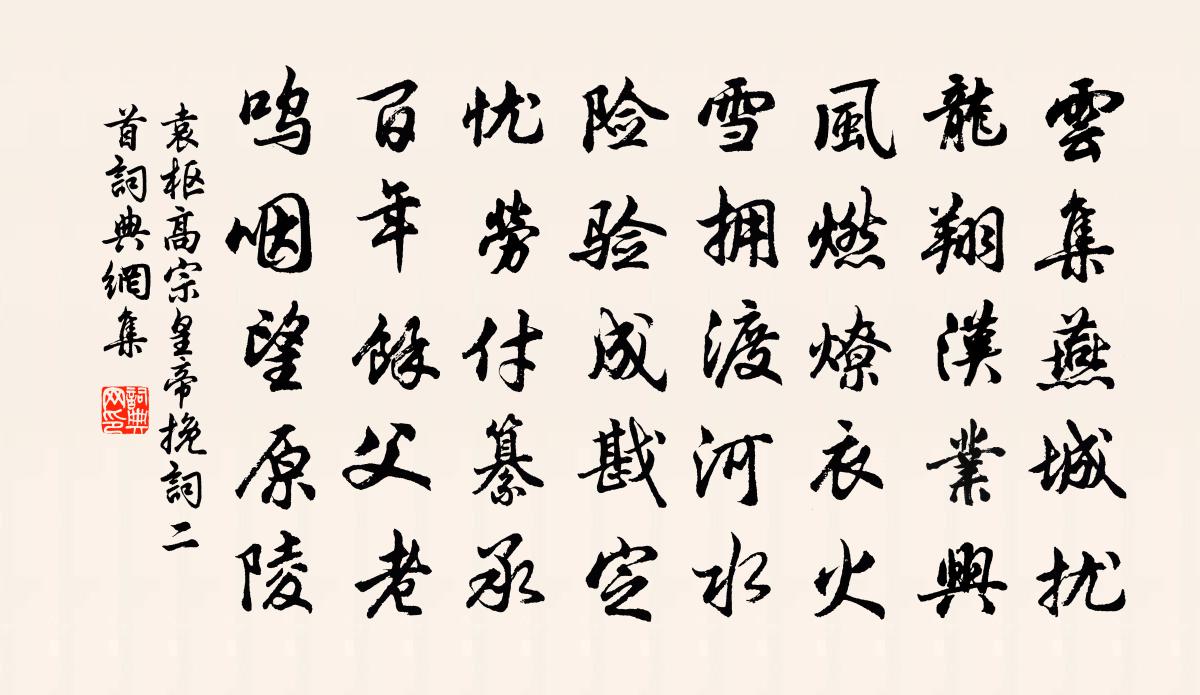 雲集燕城扰
龍翔漢業興
風燃燎衣火
雪拥渡河水
险验成戡定
忧勞付纂承
百年餘父老
呜咽望原陵
袁枢高宗皇帝挽詞二
首詞典網集
詞典
网印